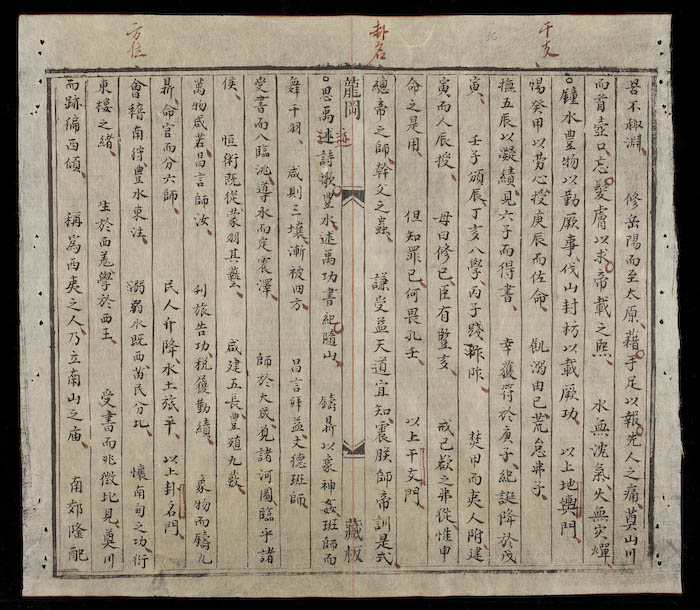 干支
卦名
方位
不趣淵 修岳陽而至太原藉手足以報先人之痛奠山川
而首壺口忘髮膚以求帝載之熙 水無沈氣火無災燀
鐘水豐物以勤厥事伐山封枋以載厥功 以上地輿門
惕癸甲以勞心授庚辰而佐命 飢溺由已荒怠弗子
撫五辰以凝績見六子而得書 幸獲符於庚子紀誕降於戊
寅 壬子頒辰丁亥入學丙子踐阼 焚甲而夷人附建
寅而人辰授 毋曰修已臣有豎亥 戒已欲之弗從惟申
命之是用 但知罪已何畏孔壬 以上干支門
總帝之師幹父之蠱 謙受益天道宜知震朕師帝訓是式
龍岡 藏板
思萬述詩歌豐水述禹功書紀隨山 鑄鼎以象神姦班師而
舞干羽 咸則三壤漸被四方 昌言拜益文德班師
受書而八臨洮導水而定震澤 師於大 見諸河圖臨乎諸
侯 恒衛既從蒙羽其藝 咸建五長豐殖九藪
萬物咸若昌言師汝 利旅告功稅獲勤績 象物而鑄九
鼎命官而分六師 民人升降水土旅平 以上卦名門
會稽南狩豐水東注 溺弱水既西苗民分北 懷南甸之功衍
東樓之緒 生於西羌學於西王 受書而兆徵北見奠川
而跡徧西傾 稱為西夷之人乃立南山之廟 南郊隆配